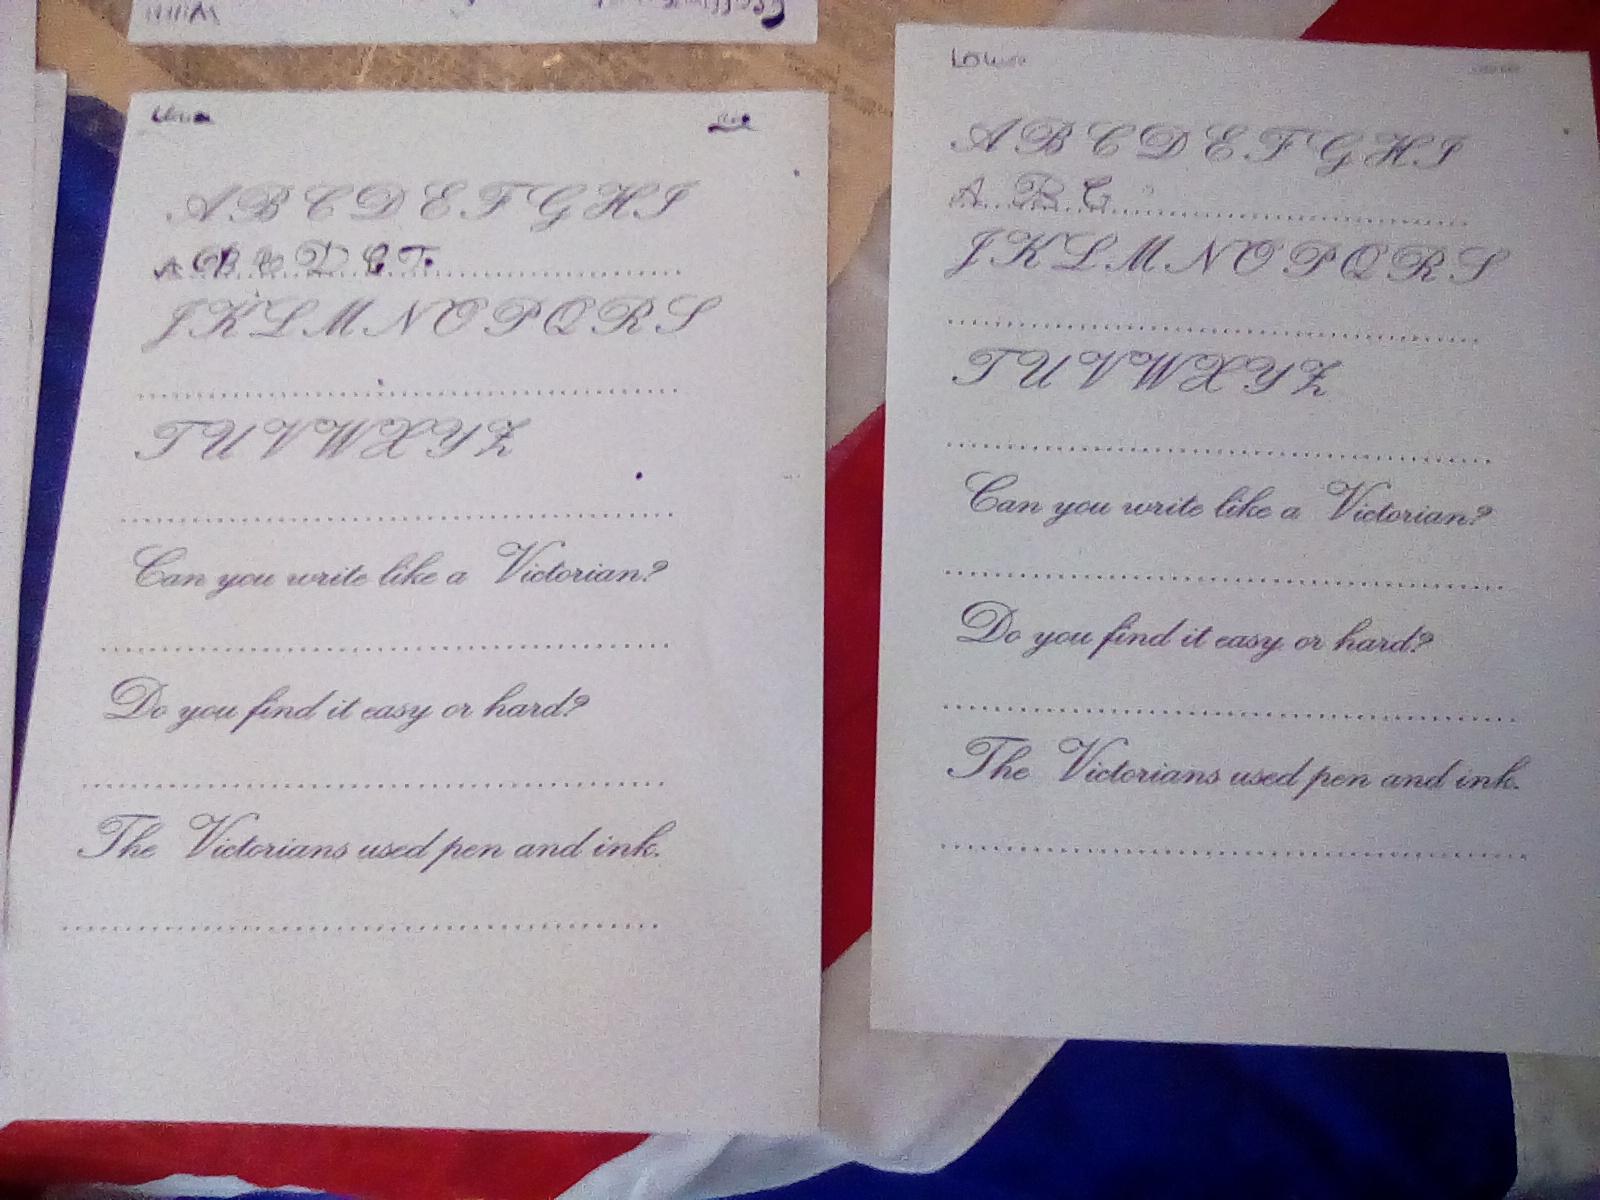 A B C D E F G H I
A B C D E F
J K L M N O P Q R S
T U V W X Y Z
Can you write like a Victorian?
Do you find it easy or hard?
The Victorians used pen and ink.
A B C D E F G H I
A B C
J K L M N O P Q R S
T U V W X Y Z
Can you write like a Victorian?
Do you find it easy or hard?
The Victorians used pen and ink.